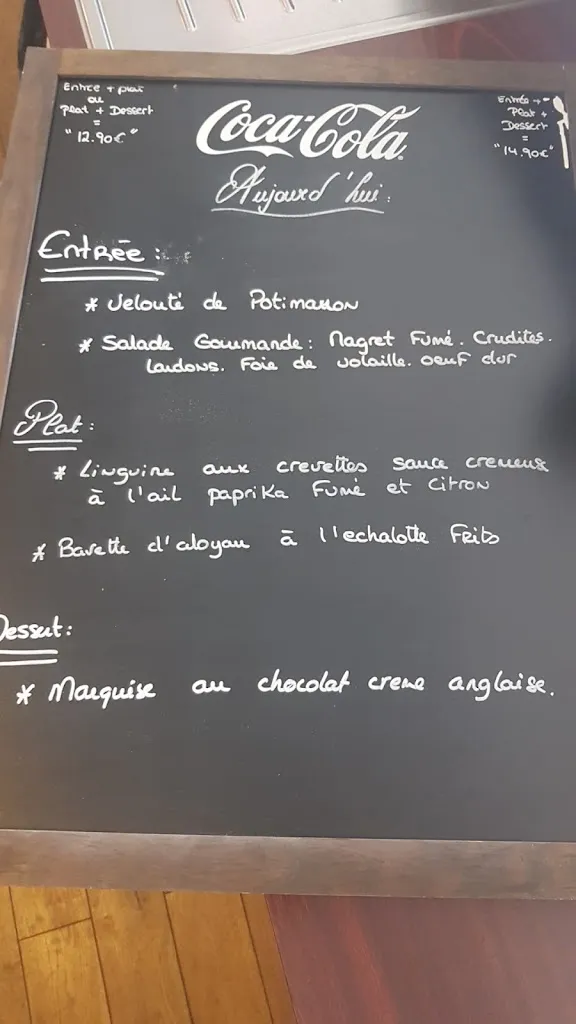 Entrée + plat
ou
Plat + Dessert
=
"12.90€"
Entrée +
Plat +
Dessert
=
"14.90€"
Coca-Cola
Aujourd'hui:
Entrée:
* Velouté de Potimarron
* Salade Gourmande: Magret Fumé. Crudites.
lardons. Foie de volaille. oeuf dur
Plat:
* Linguine aux crevettes sauce cremeuse
à l'ail paprika Fumé et citron
* Bavette d'aloyau à l'echalotte Frites
Dessert:
* Marquise au chocolat creme anglaise.